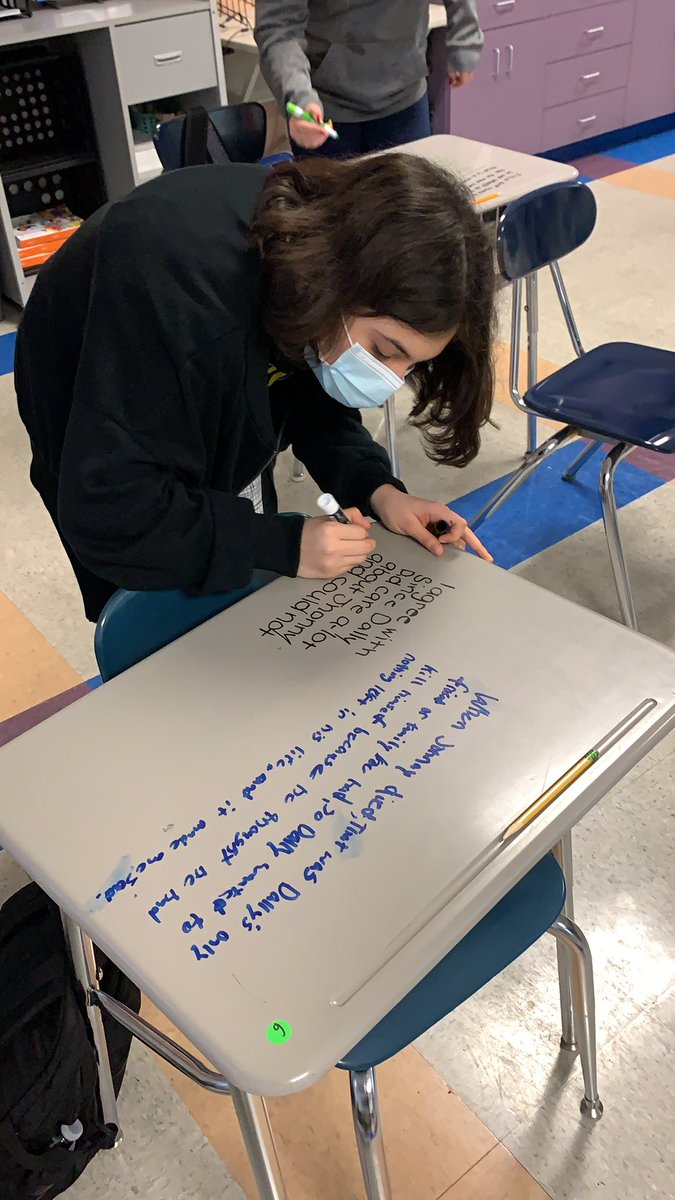 When Jonny died, That was Dally's only
friend or family he had, So Dally wanted to
kill himself because he thought he had
nothing left in his life, and it made me sad.
I agree with
Since Dally
Did care a lot
about Jhonny
and could not
6